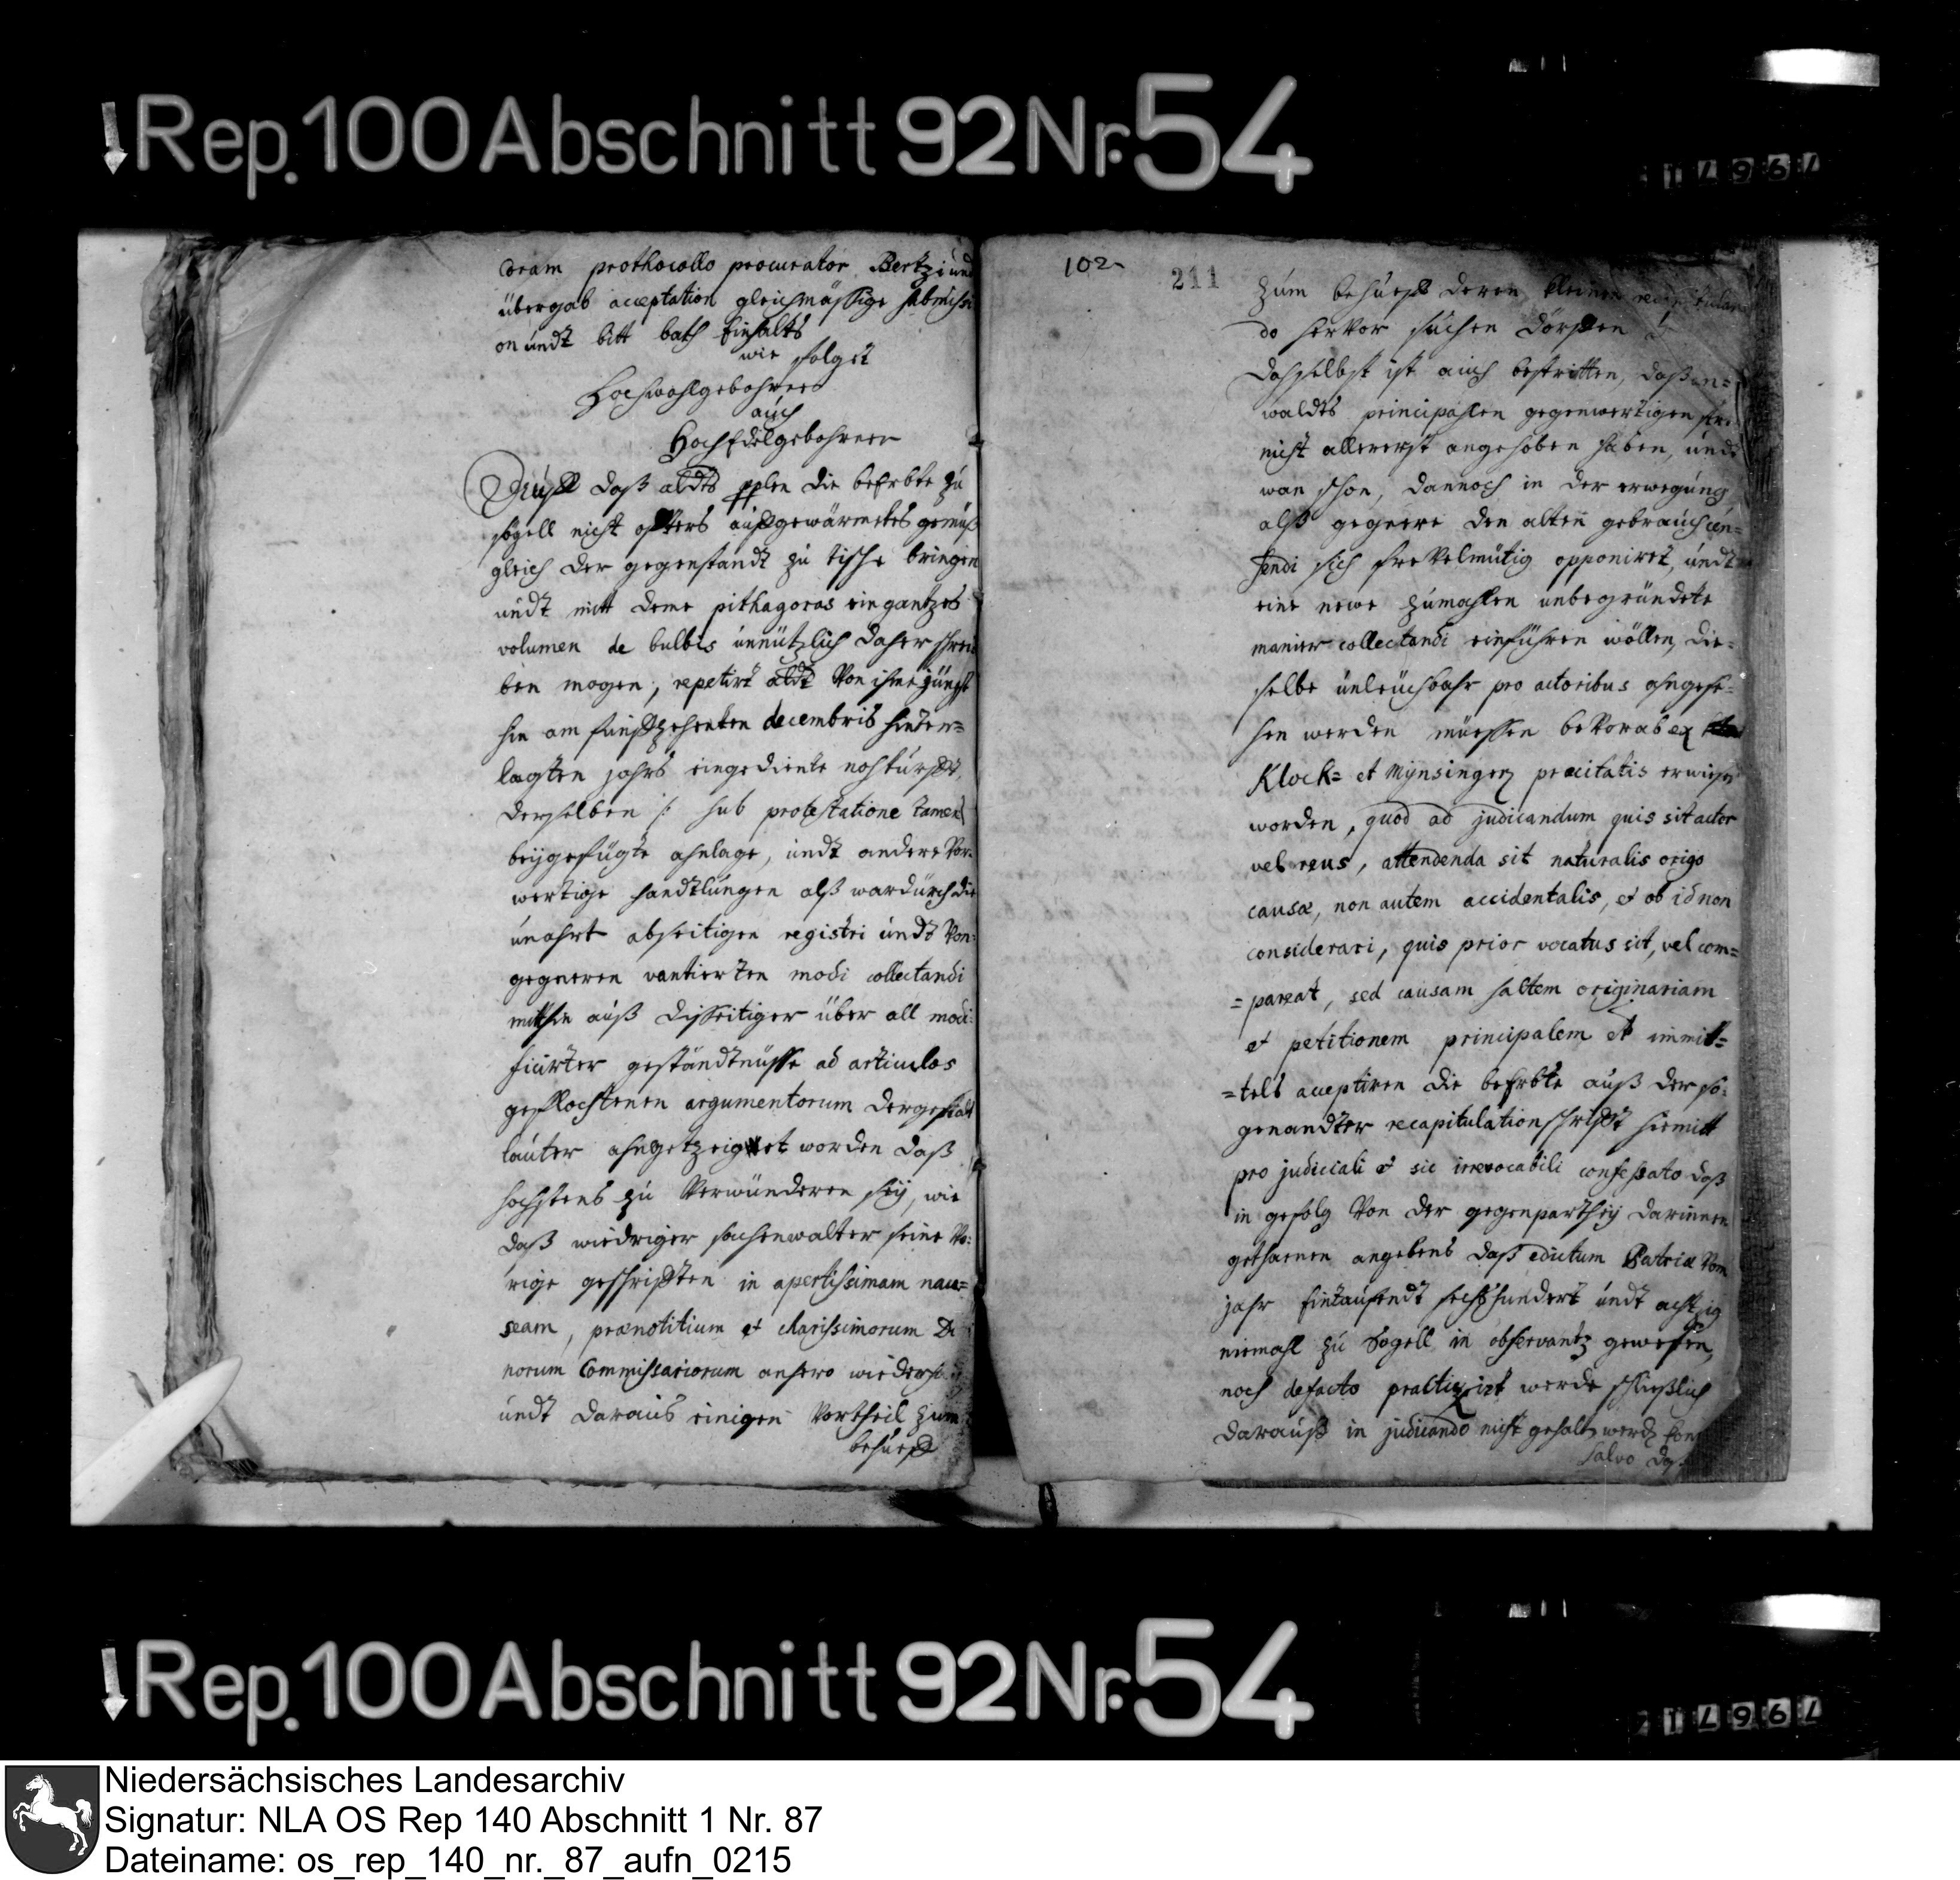 Rep. 100 Abschnitt 92 Nr. 54
coram prothocollo procurator Bertzi und
übergab acceptation gleichmässige submissi
on undt bitt bath Einhalts
wie folget
Hochwohlgebohrner
auch
HochEdelgebohrner
daß aldts pplen die beErbte zu
Sögell nicht offters auffgewärmetes gemüß
gleich der gegenstandt zu tische bringen
undt mitt deme pithagoras ein gantzes
volumen de bulbis unnützlich daher schrei
ben mogen, repetirt aldt von ihme jüngst
hin am funffzehenten decembris hinter=
lagten jahrs eingediente nohturfft,
derselben /: sub protestatione tamen
beygefügte ahnlage, undt andere vor=
wertige handtlungen alß wardurch die
unahrt abseitigen registri undt von
gegneren vantierten modi collectandi
mithin auß disseitiger über all modi=
ficirter geständtnüsse ad articulos
geflochtenen argumentorum dergestalt
lauter ahngetzeiget worden daß
hochstens zu verwunderen sey, wie
daß wiedriger sachenwalter seine vo=
rige geschrifften in apertissimam nau=
seam, prænotitium et clarissimorum Do
norum Commissariorum anhero
undt daraus einigen vortheil zum
behueff
102
211
zum behueff deren kleinen
do hervor suchen dörffen
daselbst ist auch bestritten, daß an=
waldts principahlen gegenwertigen
nicht allererst angehoben haben, undt
wan schon, dannoch in der erwegung
alß gegnere den alten gebrauch
sich frevelmütig opponiret, undt
eine newe zumahlen unbegründete
manier collectandi einführen wöllen, die=
selbe unleuchbahr pro actoribus ahngese=
hen werden müessen bevorab ex
Klock= et Mynsinger præcitatis erwiesen
worden, quod ad judicandum quis sit actor
vel reus, attendenda sit naturalis origo
causæ, non autem accidentalis, et ob id non
considerari, quis prior vocatus sit, vel com=
=pareat, sed causam saltem originariam
et petitionem principalem et immit=
=tels acceptiren die beErbte auß der so=
genandter recapitulation schrifft hiemitt
pro judiciali et sic irrevocabili confessato daß
in gefolg von der gegenparthey darinnen
gethaenen angebens daß edictum Patriæ vom
jahr Eintausendt sechshundert undt achtzig
niemahl zu Sögell in observantz gewesen,
noch de facto practiziret werde schließlich
darauß in judicando nicht gehalten werden
salvo daß
Rep. 100 Abschnitt 92 Nr. 54
Niedersächsisches Landesarchiv
Signatur: NLA OS Rep 140 Abschnitt 1 Nr. 87
Dateiname: os_rep_140_nr._87_aufn_0215